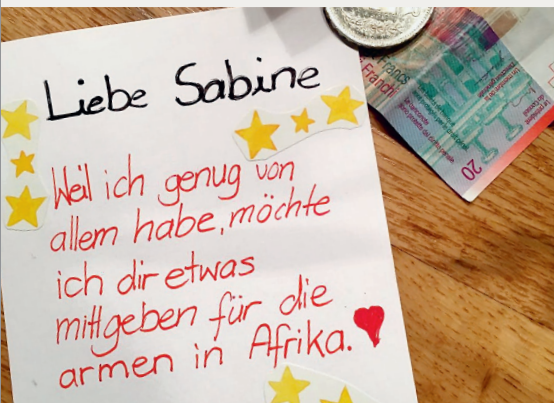 Liebe Sabine
Weil ich genug von
allem habe, möchte
ich dir etwas
mitgeben für die
armen in Afrika.
Francs
Franchi
20